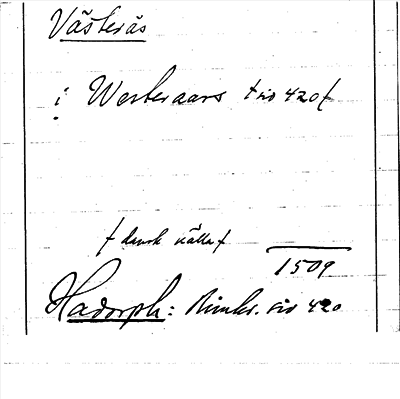 Västerås
i Westeraars † sid 420 †
† dansk källa †
1509
Hadorph: Rimkr. sid 420